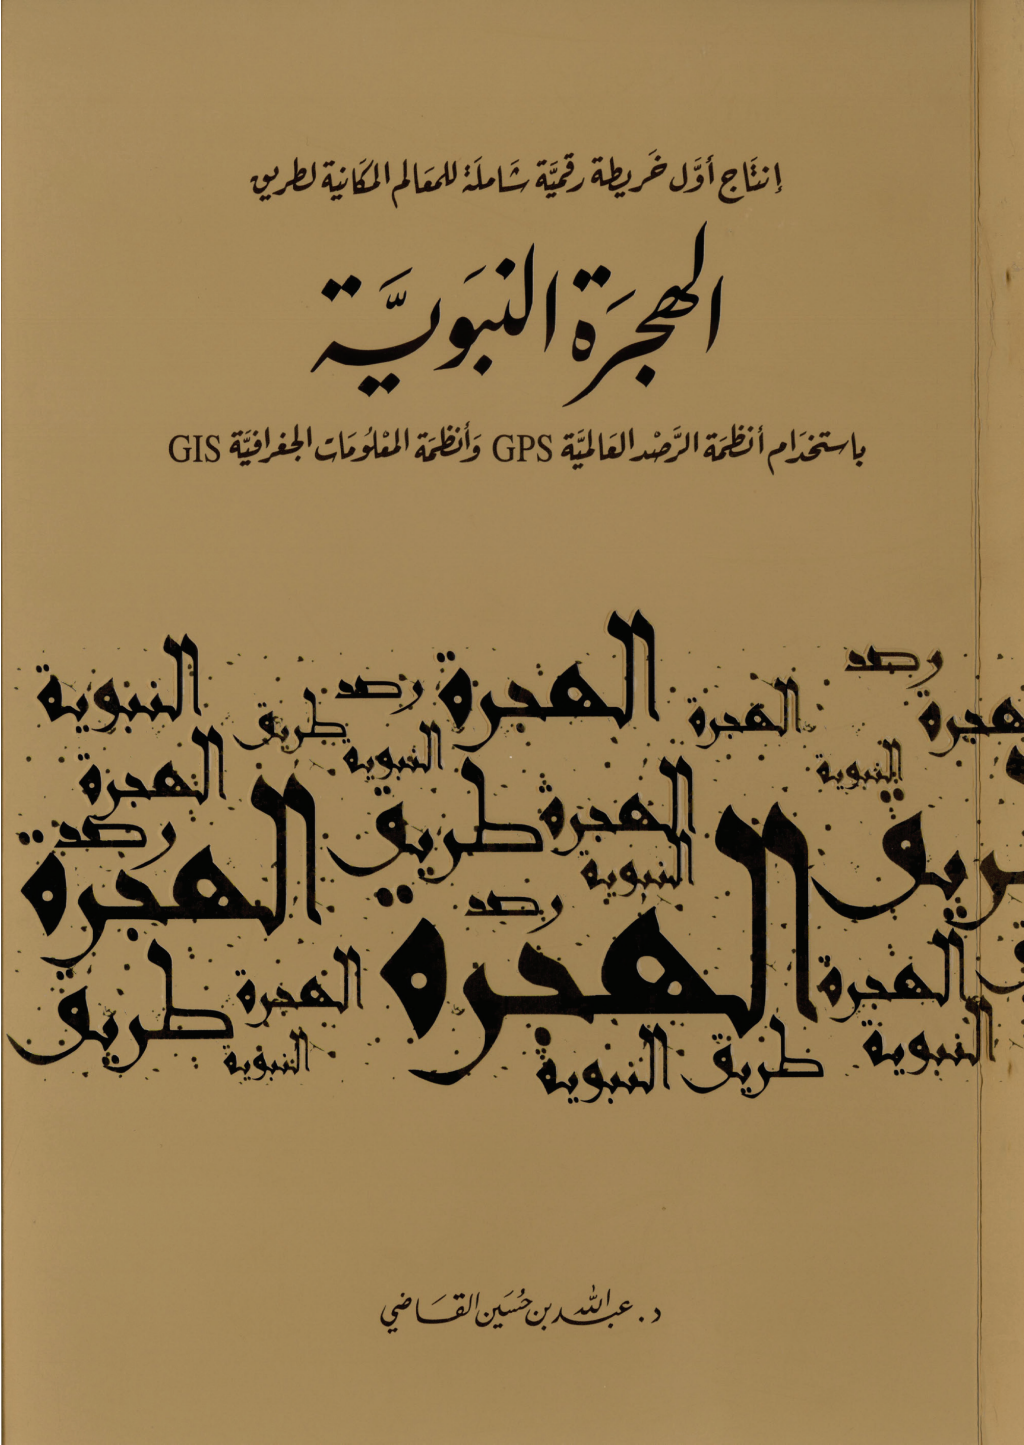 إنتَاج أوَّل خَريطة رقميَّة شَاملَة للمعَالم المكَانية لطريق
الهجرَة النبَويَّة
باستخدَام أنظمَة الرَّصْد العَالميَّة GPS وَأنظمَة المعْلُومَات الجغرافيَّة GIS
رصد
الهجرة
النبوية
رصد
طريق
الهجرة
هجرة
النبوية
النبوية
الهجرة
طريق
الهجرة
رصد
النبوية
ريق
الهجرة
رصد
الهجرة
الهجرة
طريق
الهجرة
النبوية
النبوية
طريق
النبوية
د. عبدالله بن حُسَين القَاضي